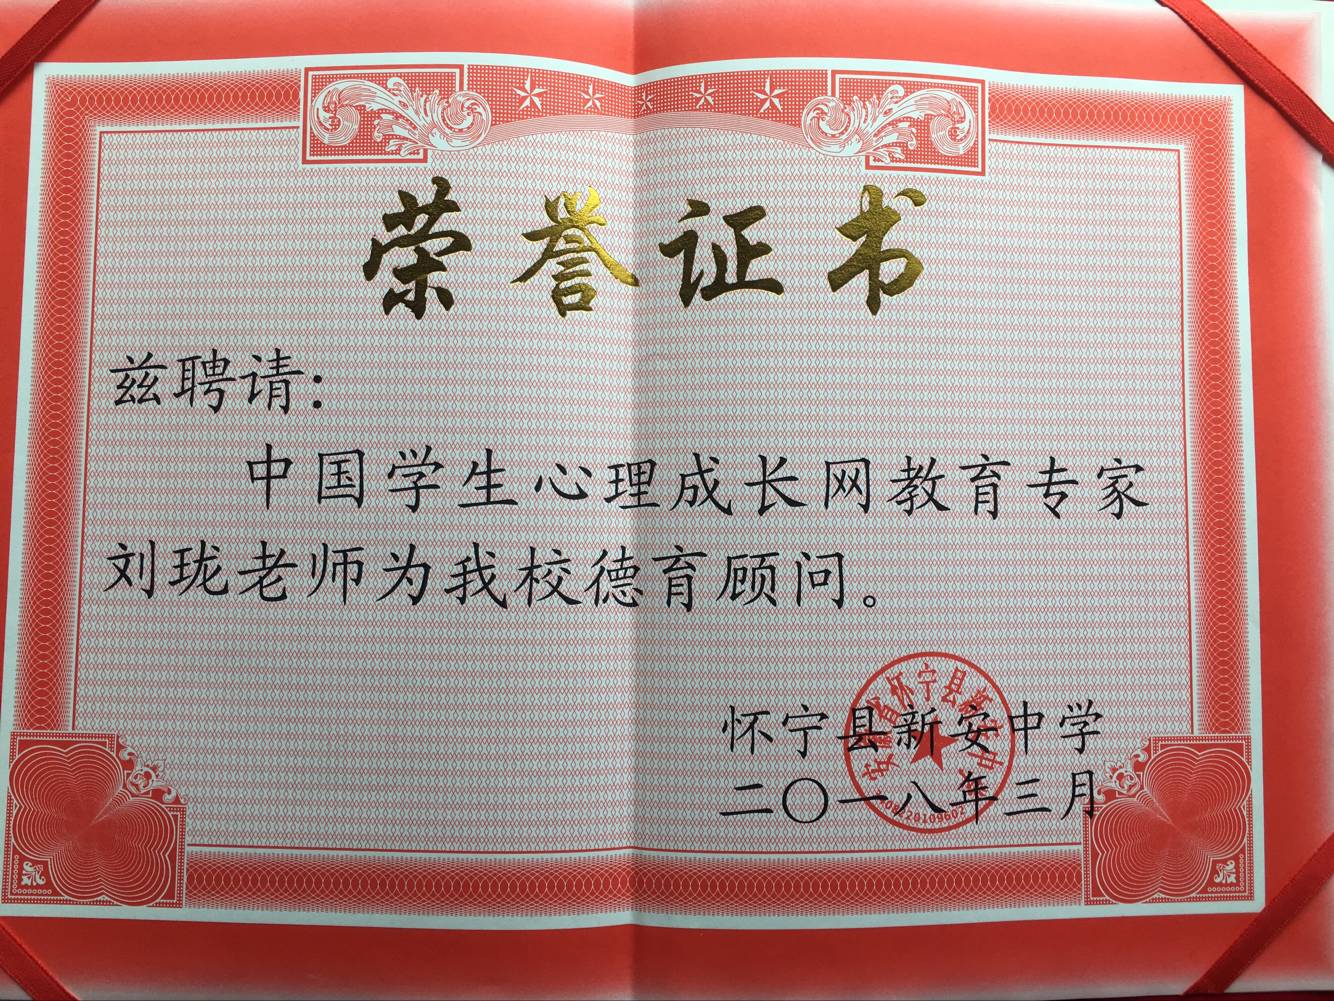 荣誉证书
兹聘请：
中国学生心理成长网教育专家
刘珑老师为我校德育顾问。
怀宁县新安中学
二〇一八年三月
安徽省怀宁县新安中学